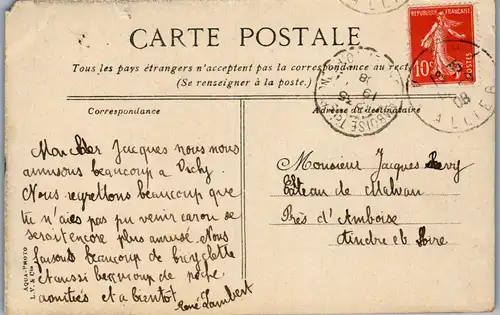 CARTE POSTALE
Tous les pays étrangers n'acceptent pas la correspondance au recto
(Se renseigner à la poste.)
Correspondance
Adresse du destinataire
REPUBLIQUE FRANÇAISE
10c
POSTES
ALLIER
08
Mon cher Jacques nous nous
amusons beaucoup a Vichy
Nous regrettons beaucoup que
tu n'aies pas pu venir car on se
serait encore plus amusé. Nous
faisons beaucoup de bicyclette
et aussi beaucoup de pêche
amitiés et a bientot
René Lambert
Monsieur Jacques Levy
Château de
Près d'Amboise
Indre et Loire
AQUA-PHOTO
L.V. & Cie